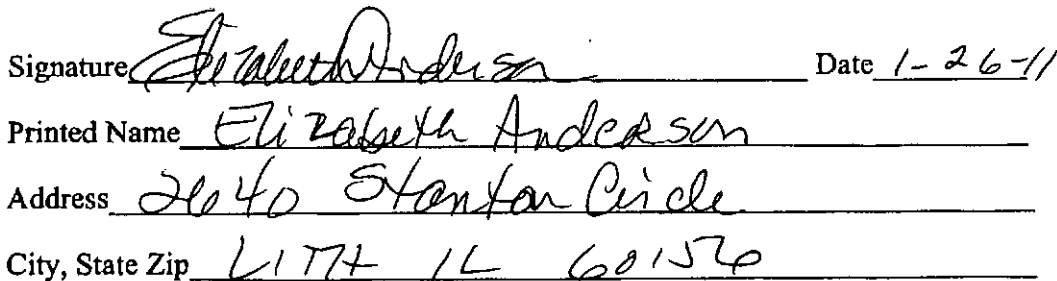 Signature Elizabeth Anderson Date 1-26-11
Printed Name Elizabeth Anderson
Address 2640 Stanton Circle
City, State Zip LITH IL 60156